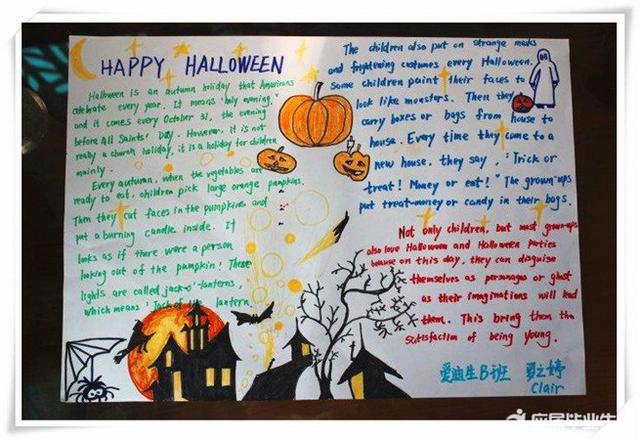 HAPPY HALLOWEEN
Halloween is an autumn holiday that Americans
celebrate every year. It means "holy evening,"
and it comes every October 31, the evening
before All Saints' Day. However, it is not
really a church holiday, it is a holiday for children
mainly.
Every autumn, when the vegetables are
ready to eat, children pick large orange pumpkins.
Then they cut faces in the pumpkins and
put a burning candle inside. It
looks as if there were a person
looking out of the pumpkin! These
lights are called jack-o'-lanterns,
which means "Jack of the lantern.
The children also put on strange masks
and frightening costumes every Halloween.
Some children paint their faces to
look like monsters. Then they
carry boxes or bags from house to
house. Every time they come to a
new house, they say, "Trick or
treat! Money or eat!" The grown-ups
put treat-money or candy in their bags.
Not only children, but most grown-ups
also love Halloween and Halloween parties
because on this day, they can disguise
themselves as personages or ghost
as their imaginations will lead
them. This bring them the
satisfaction of being young.
爱迪生B班
之婷
Clair
应届毕业生